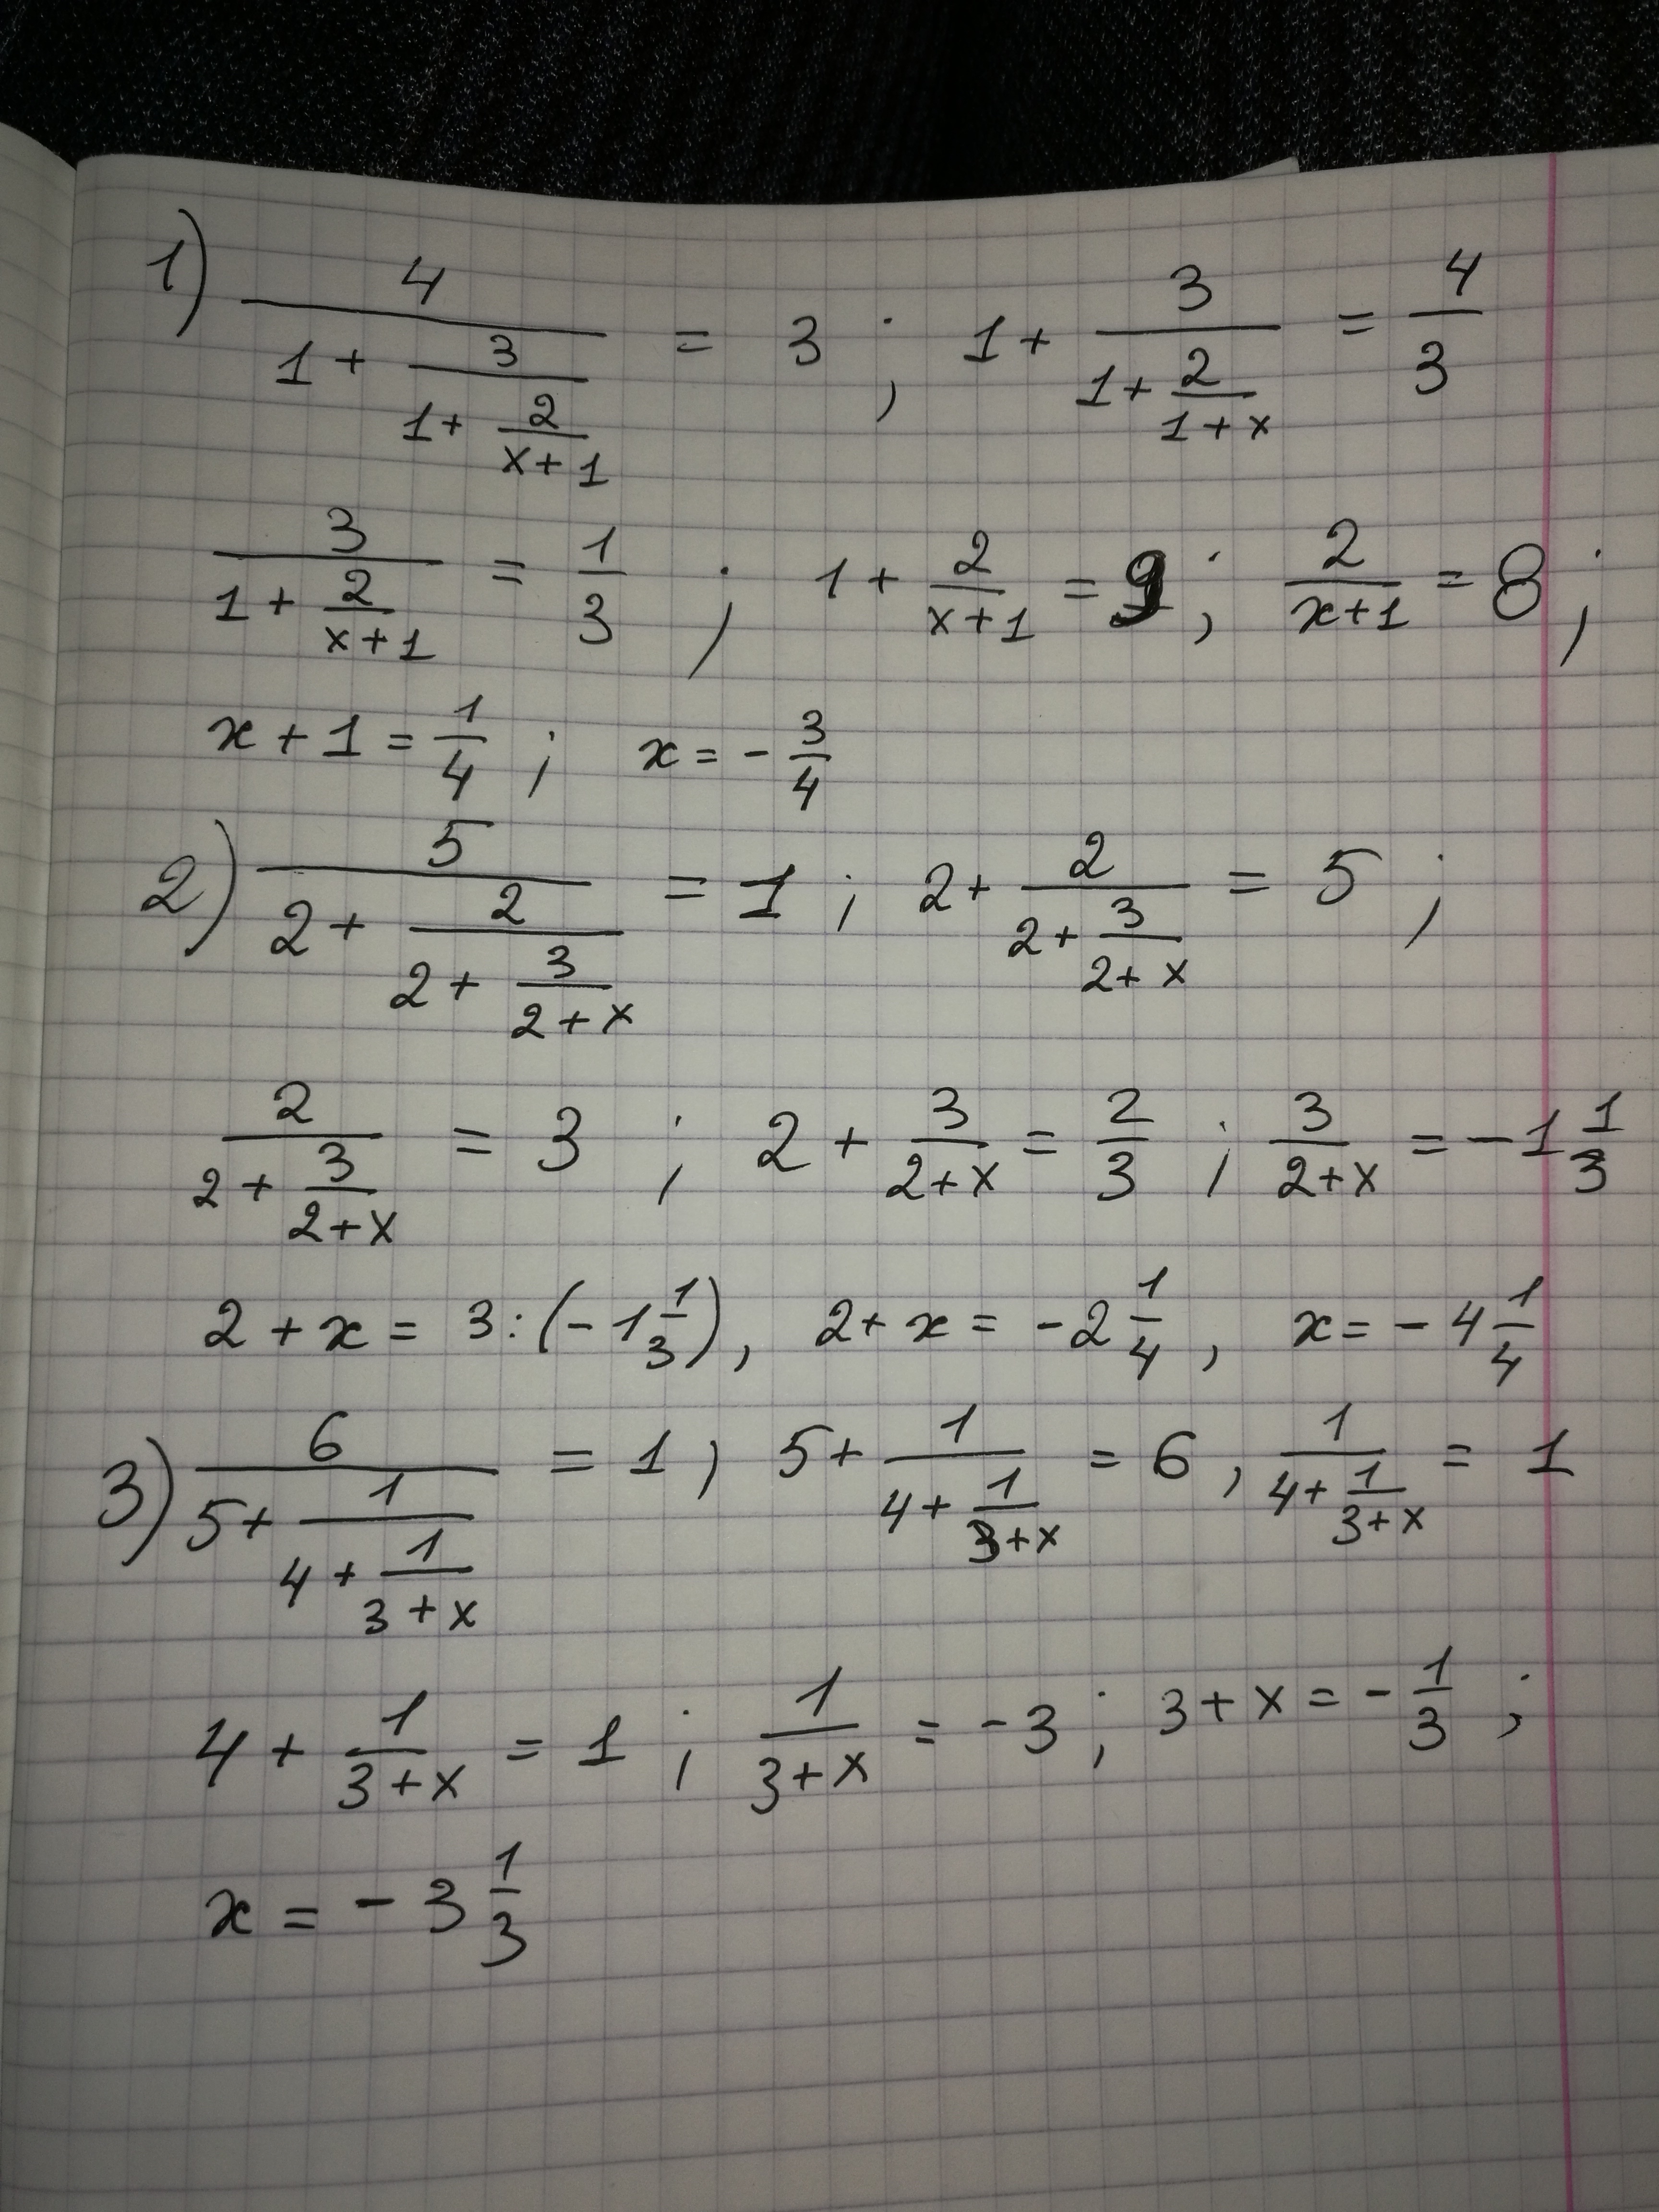 1) 4/(1 + 3/(1 + 2/(x + 1))) = 3 ; 1 + 3/(1 + 2/(1 + x)) = 4/3
3/(1 + 2/(x + 1)) = 1/3 ; 1 + 2/(x + 1) = 9 ; 2/(x + 1) = 8 ;
x + 1 = 1/4 ; x = - 3/4
2) 5/(2 + 2/(2 + 3/(2 + x))) = 1 ; 2 + 2/(2 + 3/(2 + x)) = 5 ;
2/(2 + 3/(2 + x)) = 3 ; 2 + 3/(2 + x) = 2/3 ; 3/(2 + x) = - 1 1/3
2 + x = 3 : (- 1 1/3) , 2 + x = - 2 1/4 , x = - 4 1/4
3) 6/(5 + 1/(4 + 1/(3 + x))) = 1 , 5 + 1/(4 + 1/(3 + x)) = 6 , 1/(4 + 1/(3 + x)) = 1
4 + 1/(3 + x) = 1 ; 1/(3 + x) = - 3 ; 3 + x = - 1/3 ;
x = - 3 1/3